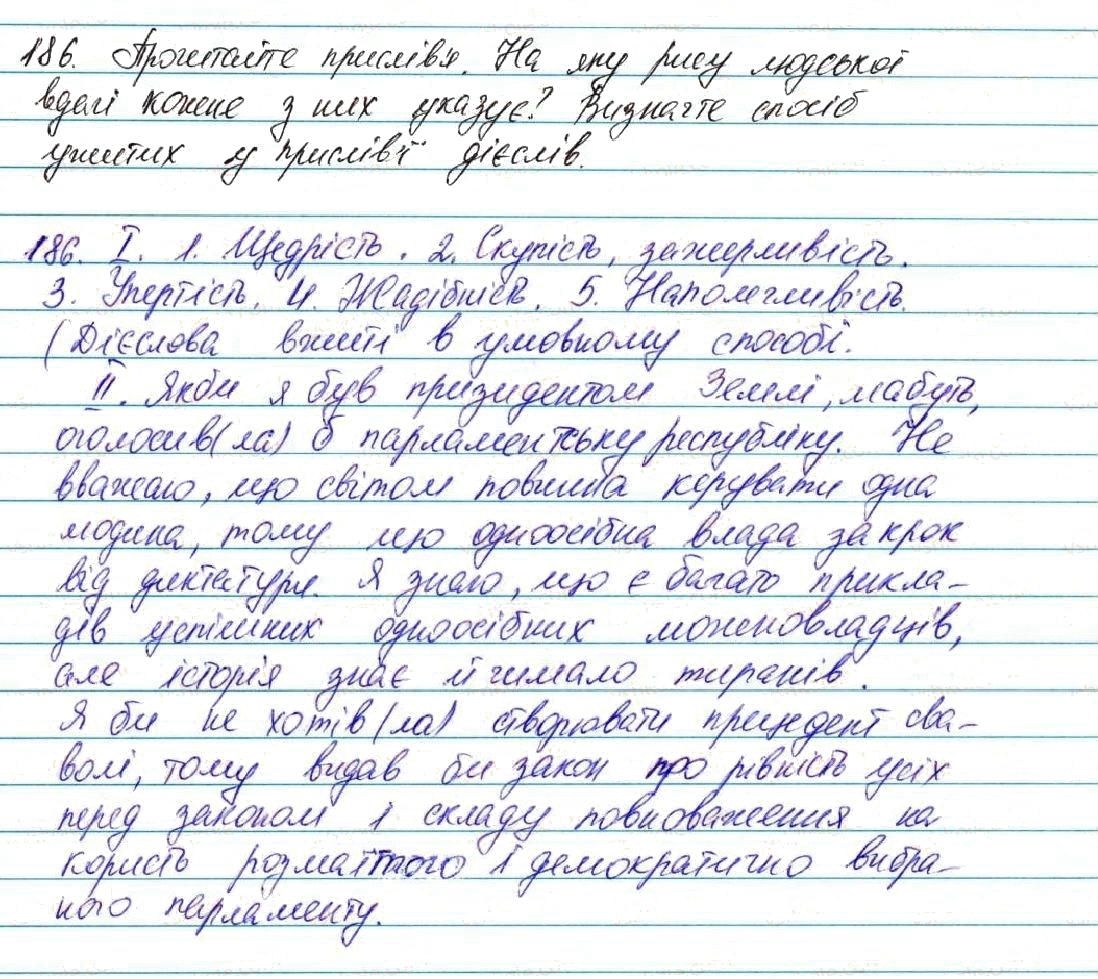 186. Прочитайте прислів'я. На яку рису людської
вдачі кожне з них указує? Визначте спосіб
ужитих у прислів'ї дієслів.
186. I. 1. Щедрість. 2. Скупість, зажерливість.
3. Упертість. 4. Жадібність. 5. Наполегливість.
(Дієслова вжиті в умовному способі.
II. Якби я був президентом Землі, мабуть,
оголосив(ла) б парламентську республіку. Не
вважаю, що світом повинна керувати одна
людина, тому що одноосібна влада за крок
від диктатури. Я знаю, що є багато прикла-
дів успішних одноосібних можновладців,
але історія знає й чимало тиранів.
Я би не хотів(ла) створювати прецедент сва-
волі, тому видав би закон про рівність усіх
перед законом і складу повноваження на
користь розмаїтого і демократично вибра-
ного парламенту.